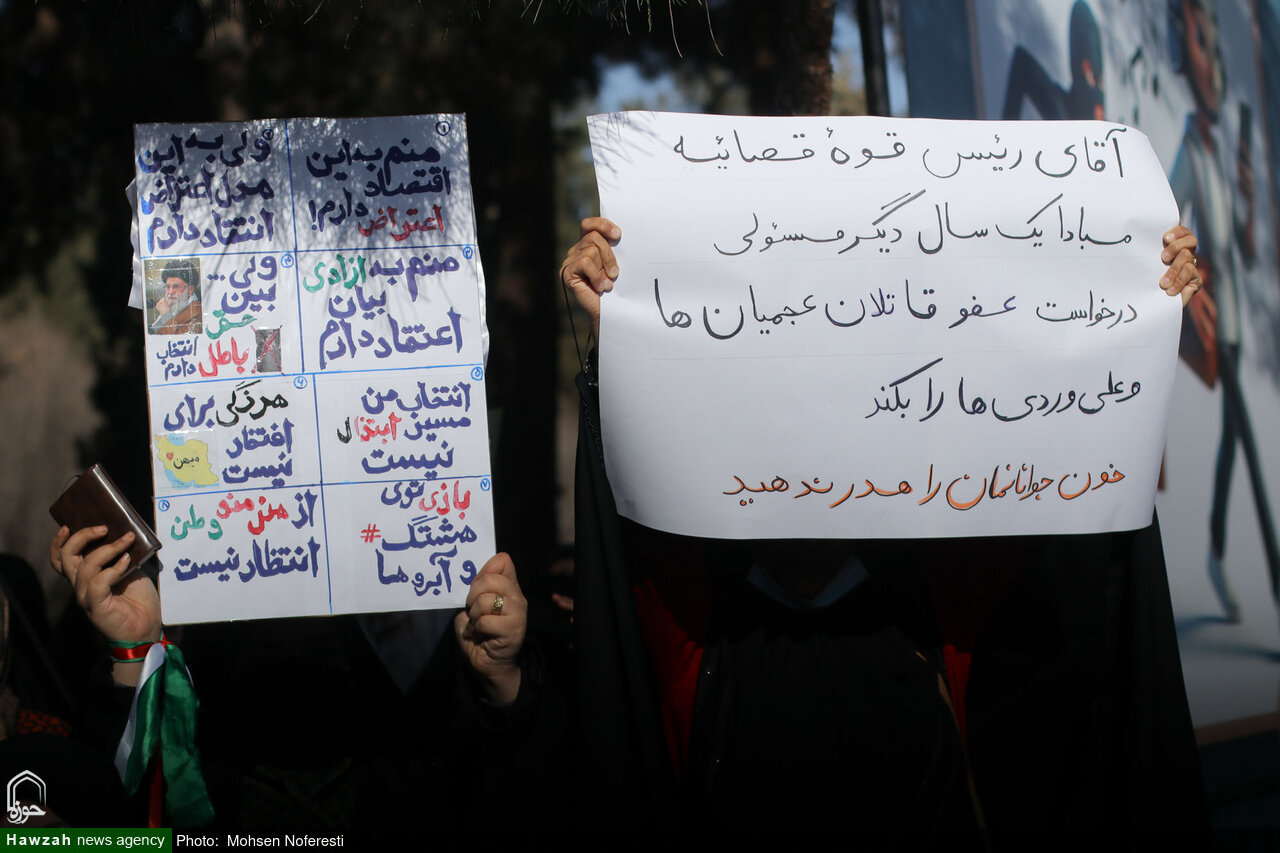 ۱
منم به این
اقتصاد
اعتراض دارم!
۲
ولی به این
مدل اعتراض
انتقاد دارم
۳
منم به آزادی
بیان
اعتقاد دارم
۴
ولی...
بین
حق
باطل
انتخاب
دارم
۵
انتخاب من
مسیر ابتذال
نیست
۶
هرزگی برای
میهن
افتخار
نیست
۷
بازی توی
#هشتگ
و آبروها
۸
از هنر منو وطن
انتظار نیست
آقای رئیس قوهٔ قضائیه
مبادا یک سال دیگر مسئولی
درخواست عفو قاتلان عجمیان ها
و علی وردی ها را بکند
خون جوانانمان را هدر ندهید
حوزه
Hawzah news agency Photo: Mohsen Noferesti